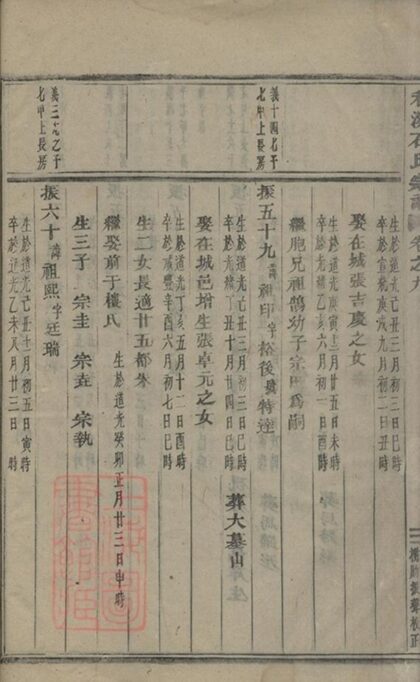 溪石氏宗譜 卷之九
生於道光己丑十二月初三日巳時
卒於宣統庚戌九月初二日丑時
娶在城張吉慶之女
生於道光庚寅十二月廿五日未時
卒於光緒六月初一日酉時
繼胞兄祖鵠幼子宗田爲嗣
義十四七子
七甲上長房
振五十九 諱祖印字裕後號特達
生於道光己丑三月初三日巳時
卒於光緒丁丑十月廿四日巳時
葬大墓山
娶在城邑增生張卓元之女
生於道光丁亥五月十二日酉時
卒於咸豐辛酉六月初七日巳時
生二女長適廿五都朱
繼娶前于樓氏 生於道光癸卯正月廿三日申時
生三子 宗圭 宗垚 宗執
義三乙子
七甲上長房
振六十 諱祖熙字廷瑞
生於道光己丑十一月初五日寅時
卒於道光乙未八月廿三日時